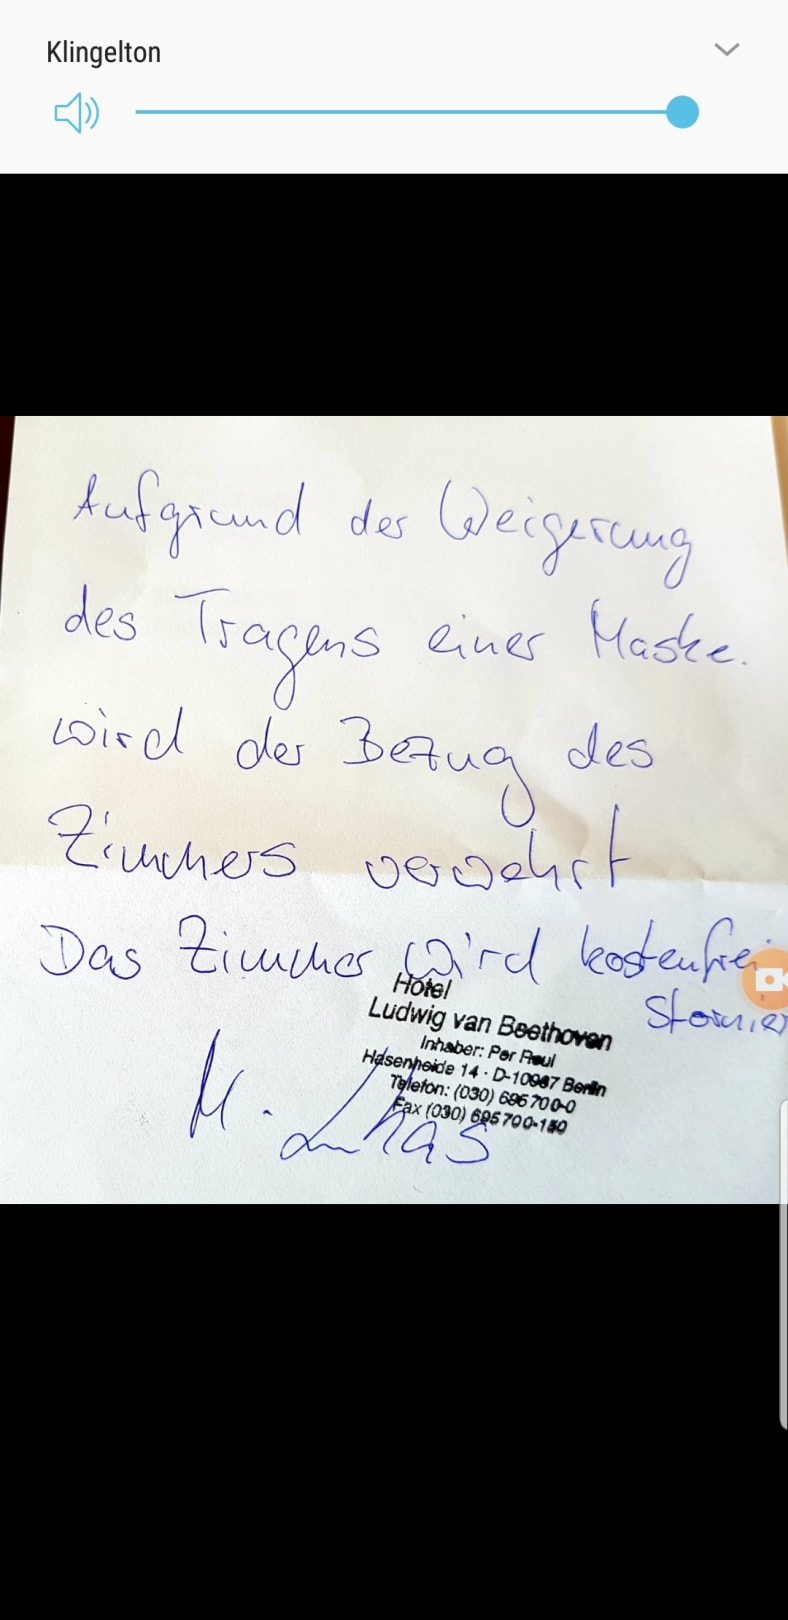 Klingelton
Aufgrund der Weigerung
des Tragens einer Maske.
wird der Bezug des
Zimmers verwehrt
Das Zimmer wird kostenfrei
Stornier
Hotel
Ludwig van Beethoven
Inhaber: Per Raul
Hasenheide 14 · D-10967 Berlin
Telefon: (030) 695 700-0
Fax (030) 695 700-150
M.